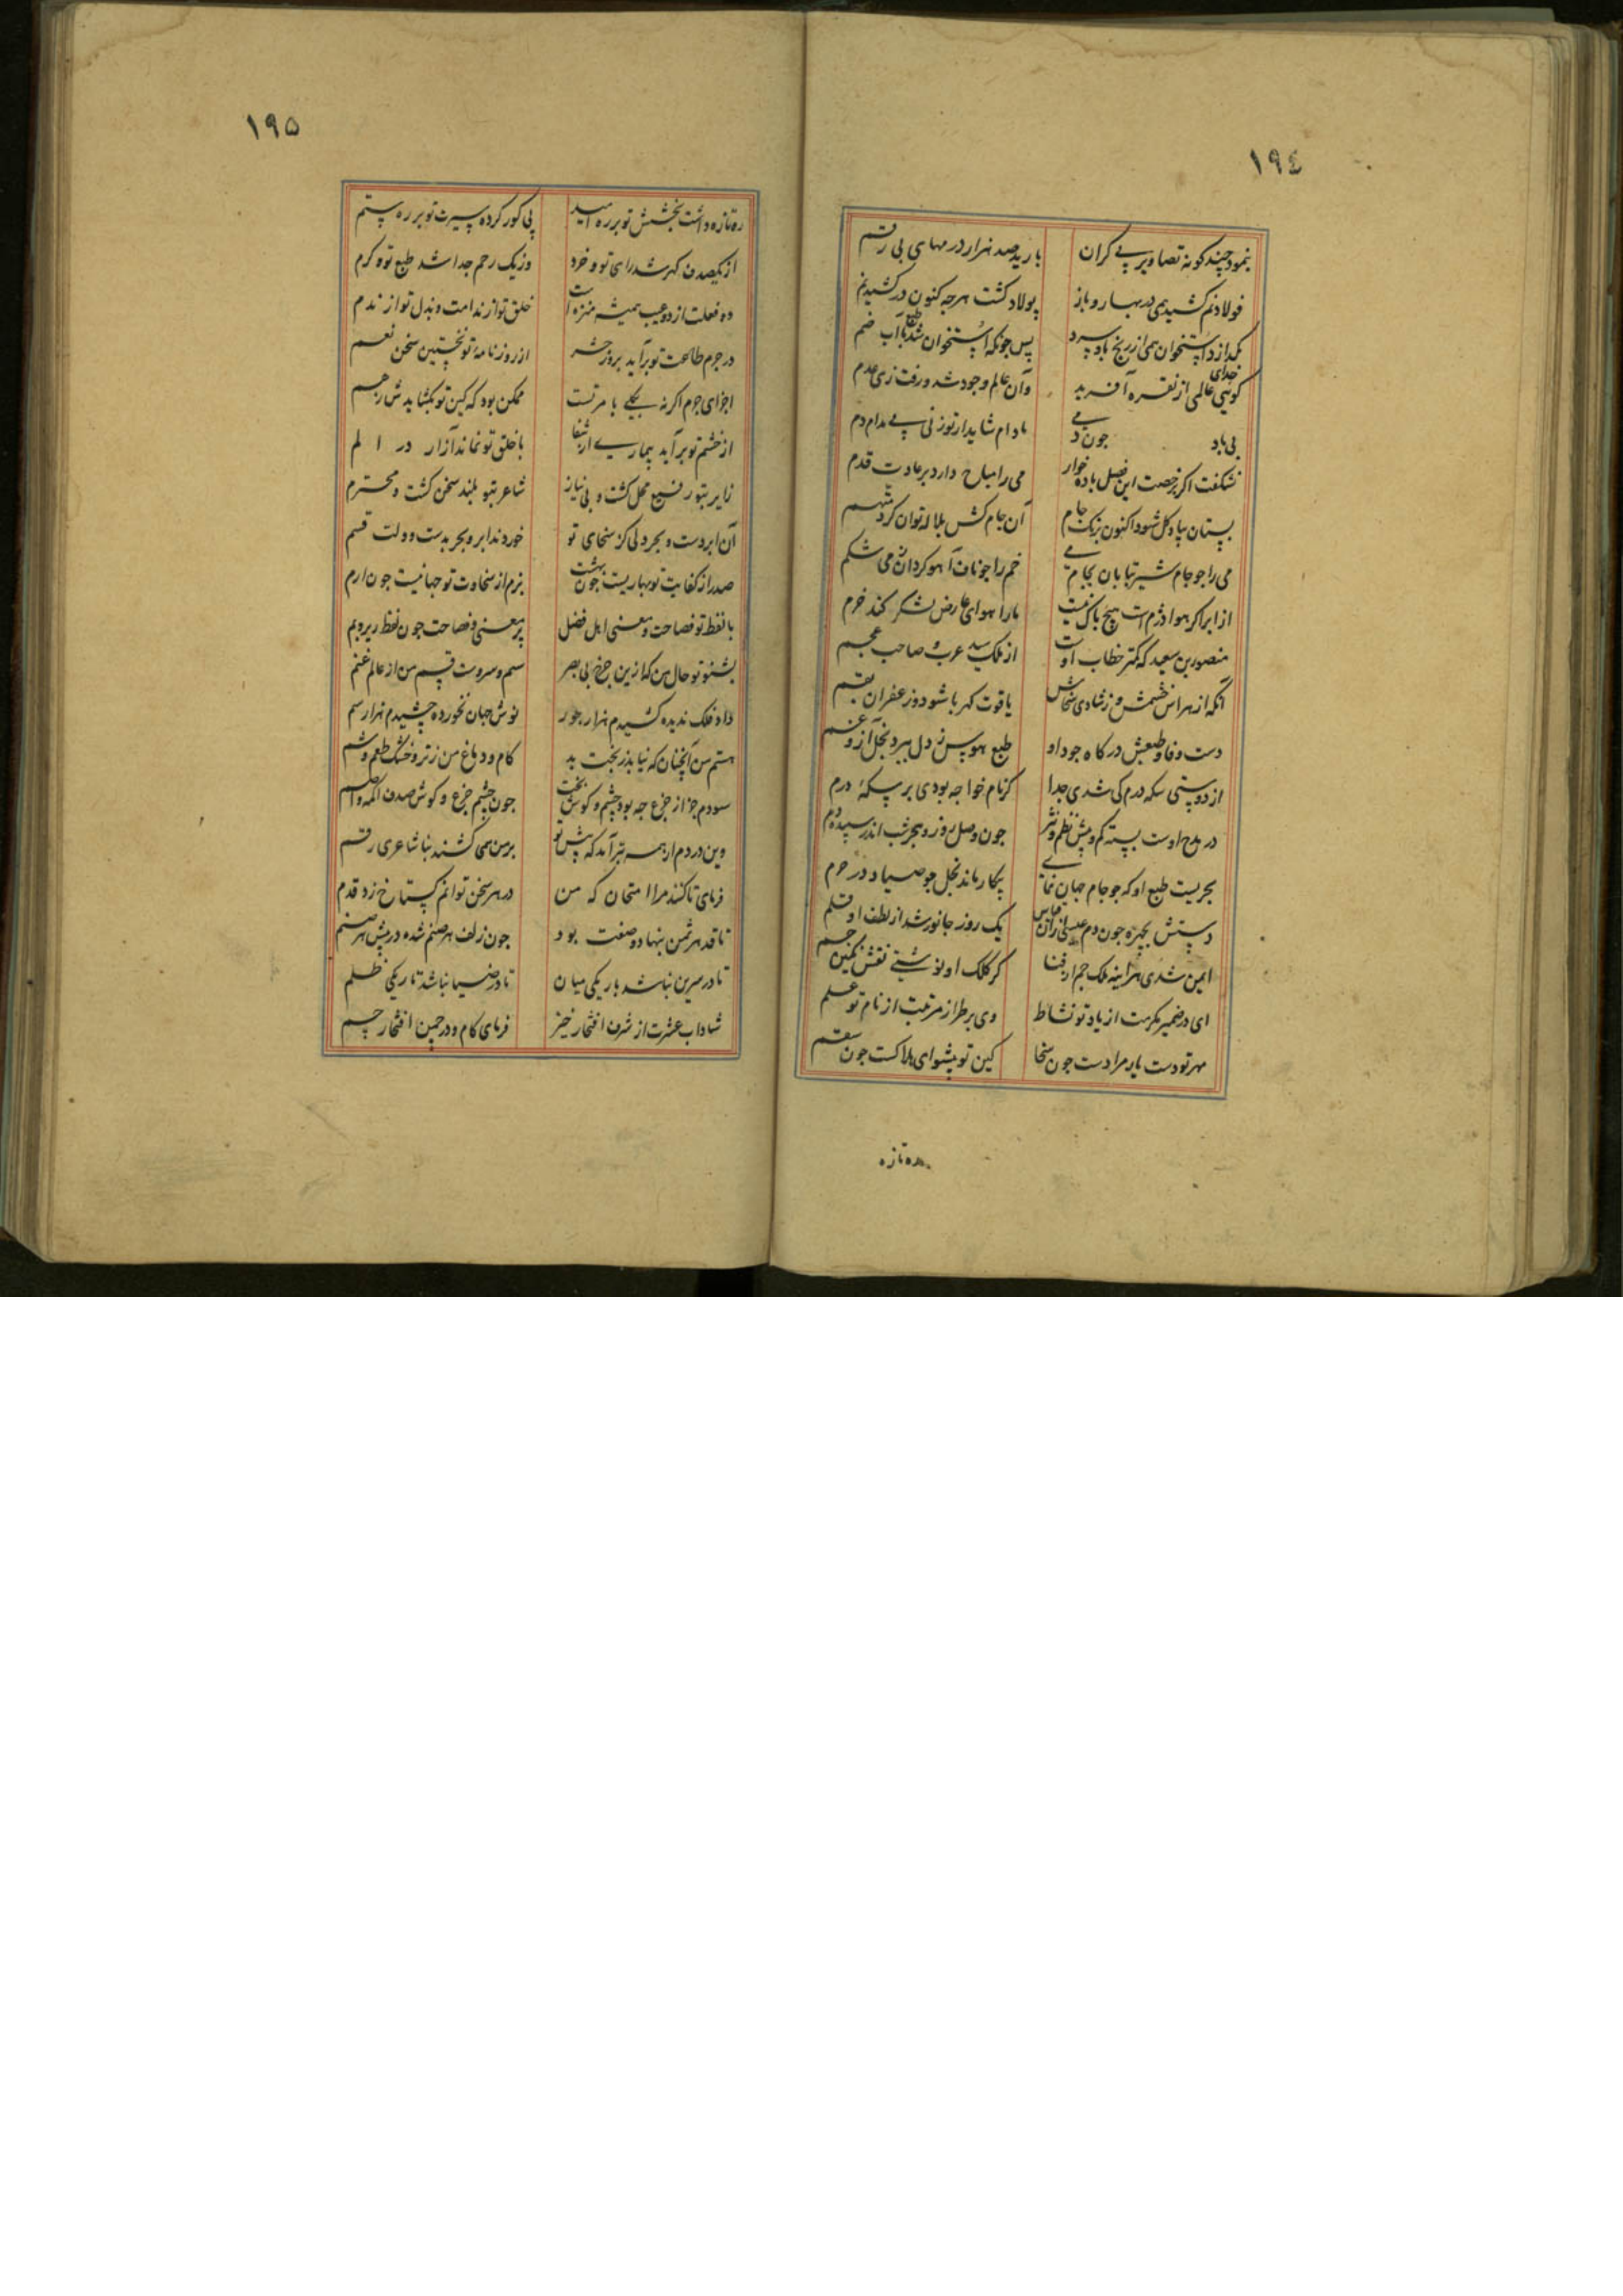 ١٩٤
بنمود چند کونه تصاویر بی کران    بارید صد هزار درمهای بی رقم
فولاد نم کشید همی در بهار و باز    پولاد کشت هرجه کنون در کشید نم
بکدازد استخوان همی از رنج باد سرد    پس جونکه استخوان شد با آب ضم
کوئی خدای عالمی از نقره آفرید    وان عالم وجود شد و رفت زی عدم
بی باد جون دمی    مادام شاید ار تو زنی بی مدام دم
نشکفت اکر برخصت این فصل باده خوار    می را مباح دارد بر عادت قدم
بستان بیاد کل شود اکنون بزنک جام    آن جام کش بلاله توان کرد متهم
می را جو جام شیر بیابان بجام می    خم را جو ناف آهو کردان ز می شکم
از ابر اکر هوا دژم است هیچ باک نیست    ما را هوای عارض لشکر کند خرم
منصور بن سعید که کمتر خطاب اوست    از ملک سید عرب و صاحب عجم
آنکه از هراس خشمش و ز شادی سخاش    یاقوت کهربا شود و زعفران بقم
دست وفا و طبعش در کاه جود او    طبع هوس ز دل ببرد بخل آز و غم
از دوستی سکه درم کی شدی جدا    کر نام خواجه بودی بر سکهٔ درم
در مدح اوست بسته کم و بیش نظم و نثر    جون وصل روز و هجر شب اندر سپیده دم
بحریست طبع او که جو جام جهان نمای    بیکار ماند بخل جو صیاد در حرم
دستش بچیره جون دم عیسی    یک روز جانور شد از لطف او قلم
ایمن شدی هراینه ملک جم از فنا    کر کلک او نوشتی نقش نکین جم
ای در ضمیر مکرمت از یاد تو نشاط    وی بر طراز مرتبت از نام تو علم
مهر تو دست یار مرادست جون سخا    کین تو پیشوای هلاکست جون سقم
ره تازه
١٩٥
ره تازه داشت بخشش تو بر ره امید    پی کور کرده سیرت تو بر ره ستم
از یکصدف کهر شد رای تو و خرد    وز یک رحم جدا شد طبع تو و کرم
دو فعلت از دو عیب همیشه منزه است    خلق تو از ندامت و بذل تو از ندم
در جرم طاعت تو برآید بروز حشر    از روزنامهٔ تو نخستین سخن نعم
اجزای جرم اکر نه بکلی بامر تست    ممکن بود که کین تو بکشایدش ز هم
از خشم تو برآید بیماری از شفا    با خلق تو نماند آزار در الم
زایر بتو رفیع محل کشت و بی نیاز    شاعر بتو بلند سخن کشت و محترم
آن ابر دست و بحر دلی کز سخای تو    خوردند ابر و بحر بدست و دلت قسم
صدر از کفایت تو بهاریست جون بهشت    بزم از سخاوت تو جهانیست جون ارم
با لفظ تو فصاحت و معنی اهل فضل    پر معنی و فصاحت جون لفظ زیر و بم
بشنو تو حال من که ازین جرخ بی بصر    سم و سروست قسم من از عالم غنم
داد فلک ندیده کشیدم هزار جور    نوش جهان نخورده چشیدم هزار سم
هستم من آنچنان که نیابد ز بخت بد    کام و دماغ من ز تر و خشک طعم و شم
سودم جز از جزع جه بود چشم و کوش بخت    جون چشم جزع و کوش صدف اکمه و اصم
وین دردم از همه بترآمد که پیش تو    بر من همی کشند بنا شاعری رقم
فرمای تا کنند مرا امتحان که من    در هر سخن توانم کستاخ زد قدم
تا قد هر شمن بنهاد و صنعت بود    جون زلف هر صنم شده در پیش هر صنم
تا در سرین نباشد باریکی میان    تا در ضیا نباشد تاریکی ظلم
شاداب عشرت از شرف افتخار خیز    فرمای کام و در چمن افتخار چم